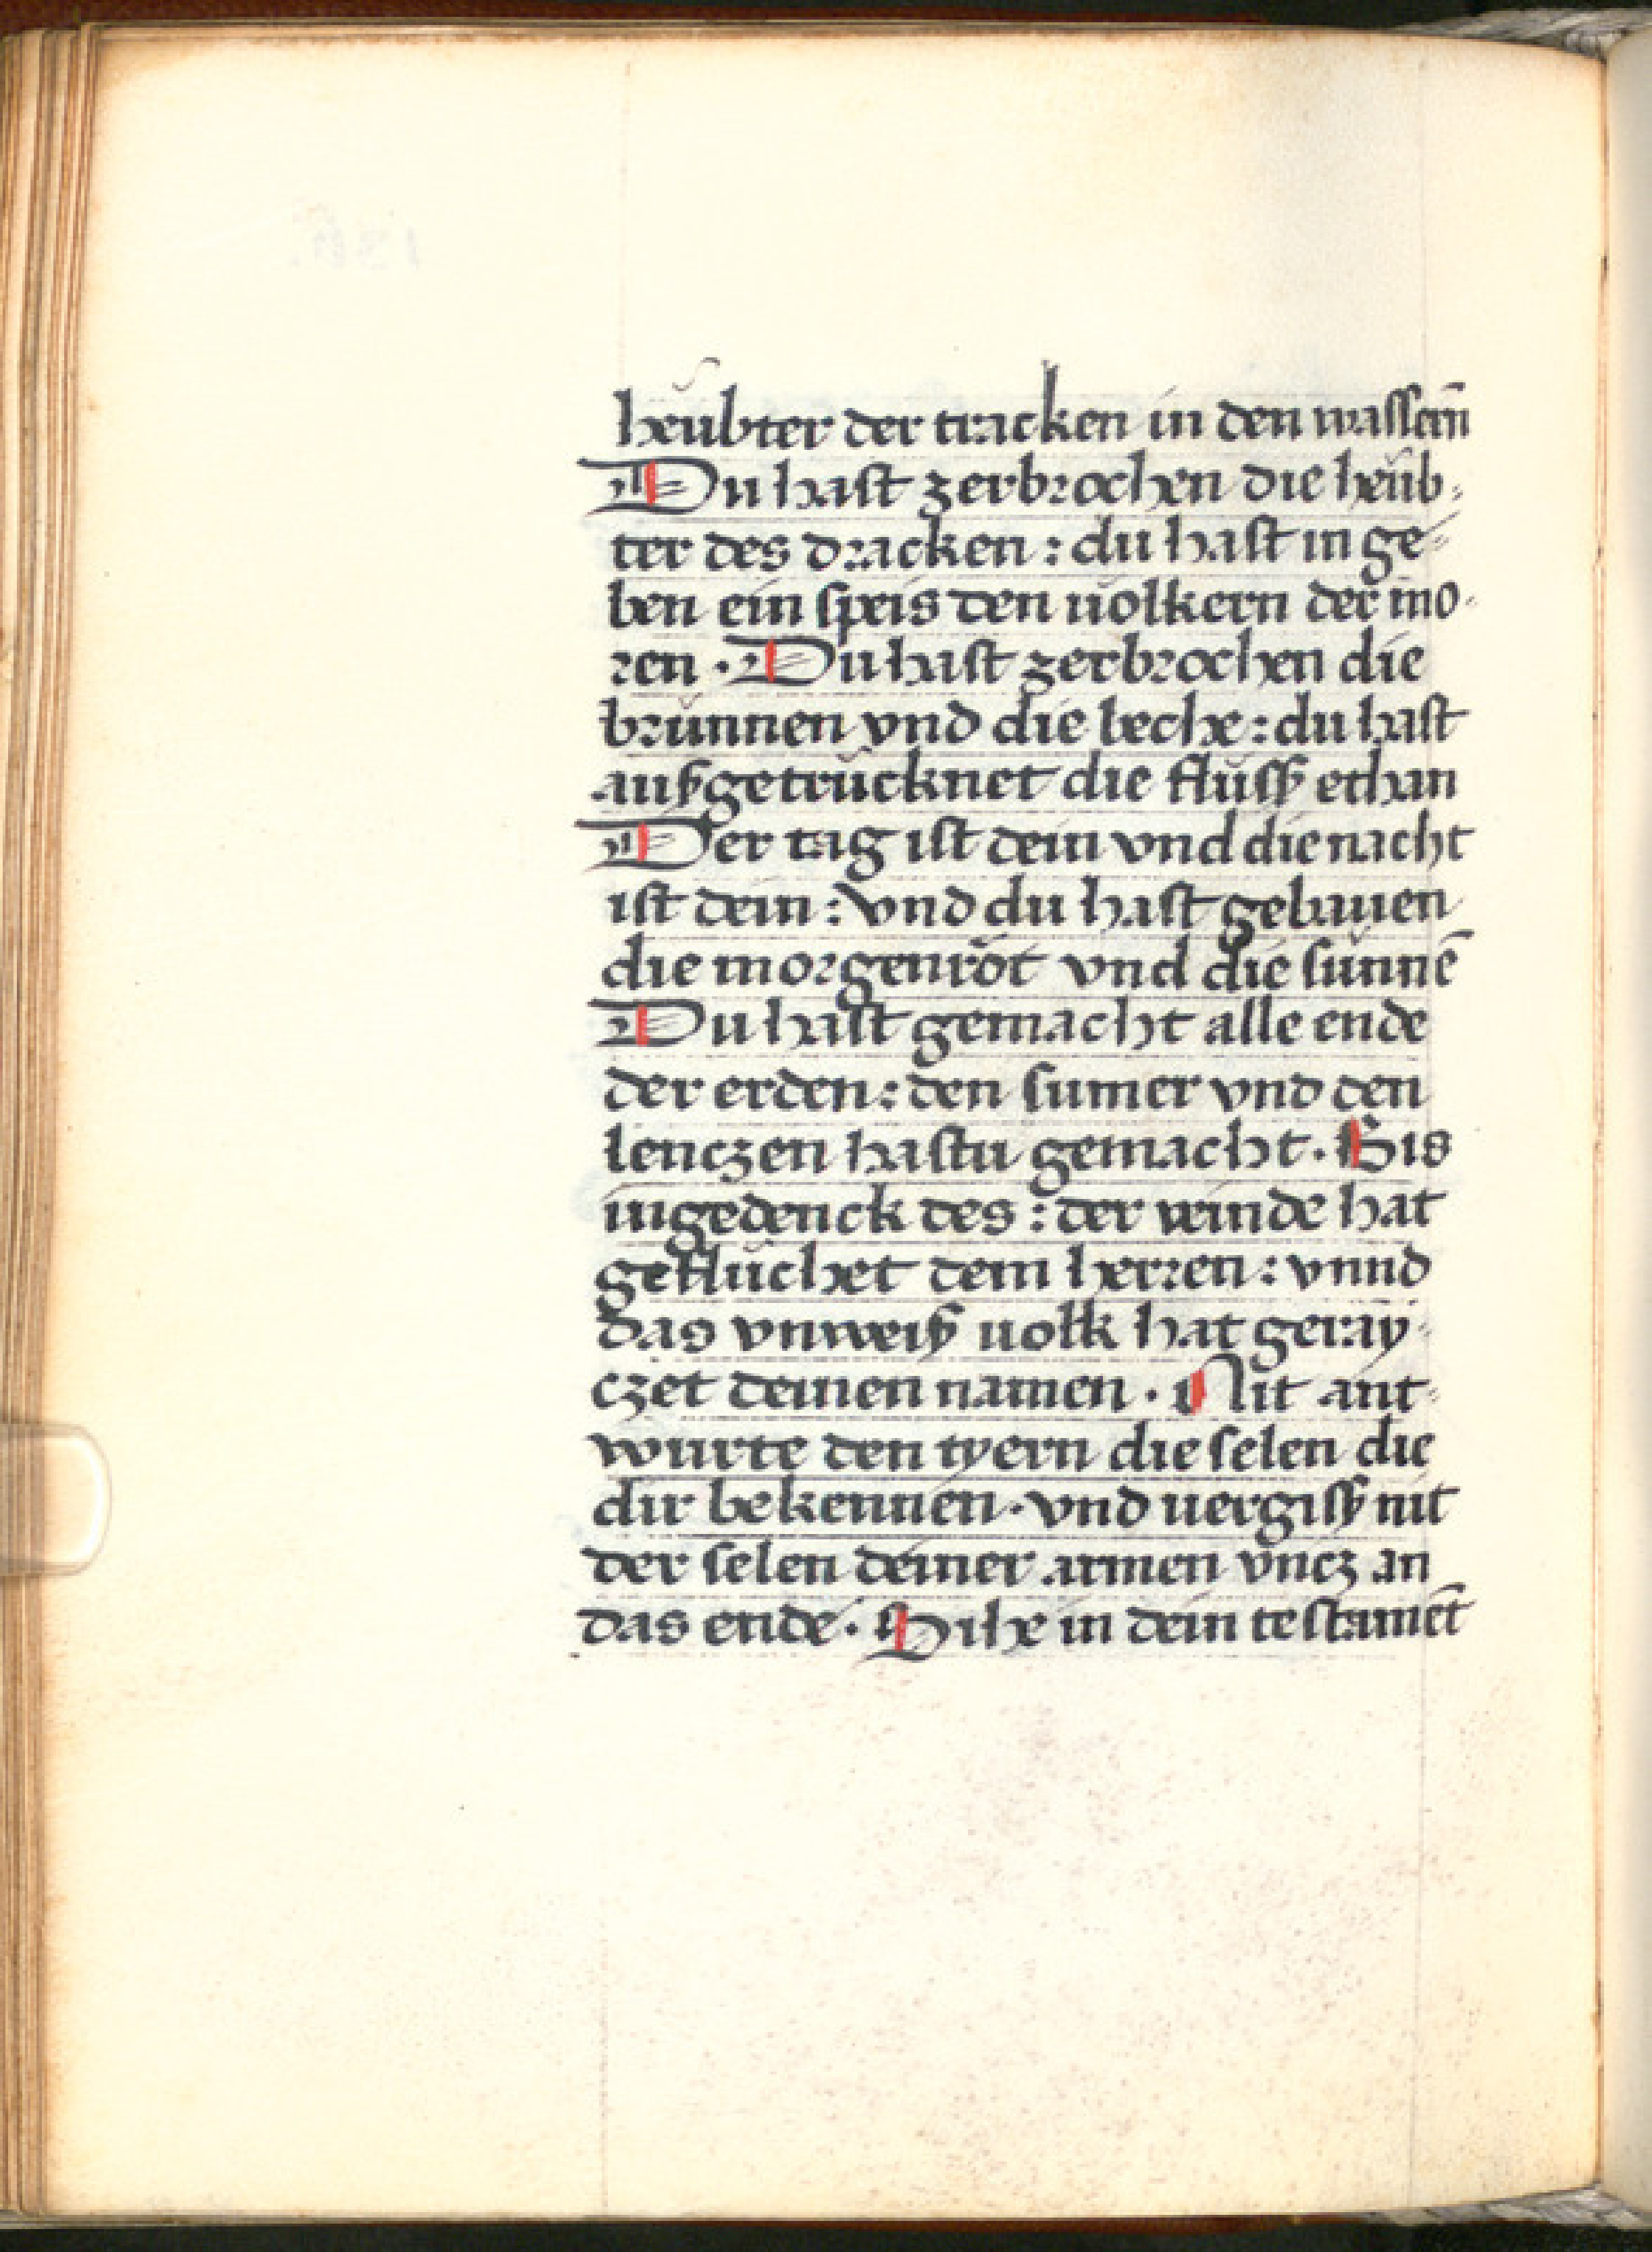 heŭbter der tracken in den waſſern̄
Du haſt zerbrochen die heŭb⸗
ter des dracken : du haſt in ge⸗
ben ein ſpeis den uölkern der mo⸗
ren · Du haſt zerbrochen die
brŭnnen vnd die beche : du haſt
auſzgetrŭcknet die flŭſſz ethan
Der tag iſt dein vnd die nacht
iſt dein : vnd du haſt gebauen
die morgenröt vnd die ſŭnnē
Du haſt gemacht alle ende
der erden : den ſumer vnd den
lenczen haſtu gemacht · Bis
ingedenck des : der veinde hat
geflŭchet dem herren : vnnd
das vnweiſz uolk hat geray⸗
czet deinen namen · Nit ant⸗
wurte den tyern die ſelen die
dir bekennen · vnd uergiſſz nit
der ſelen deiner armen vncz an
das ende · Sihe in dein teſtamēt